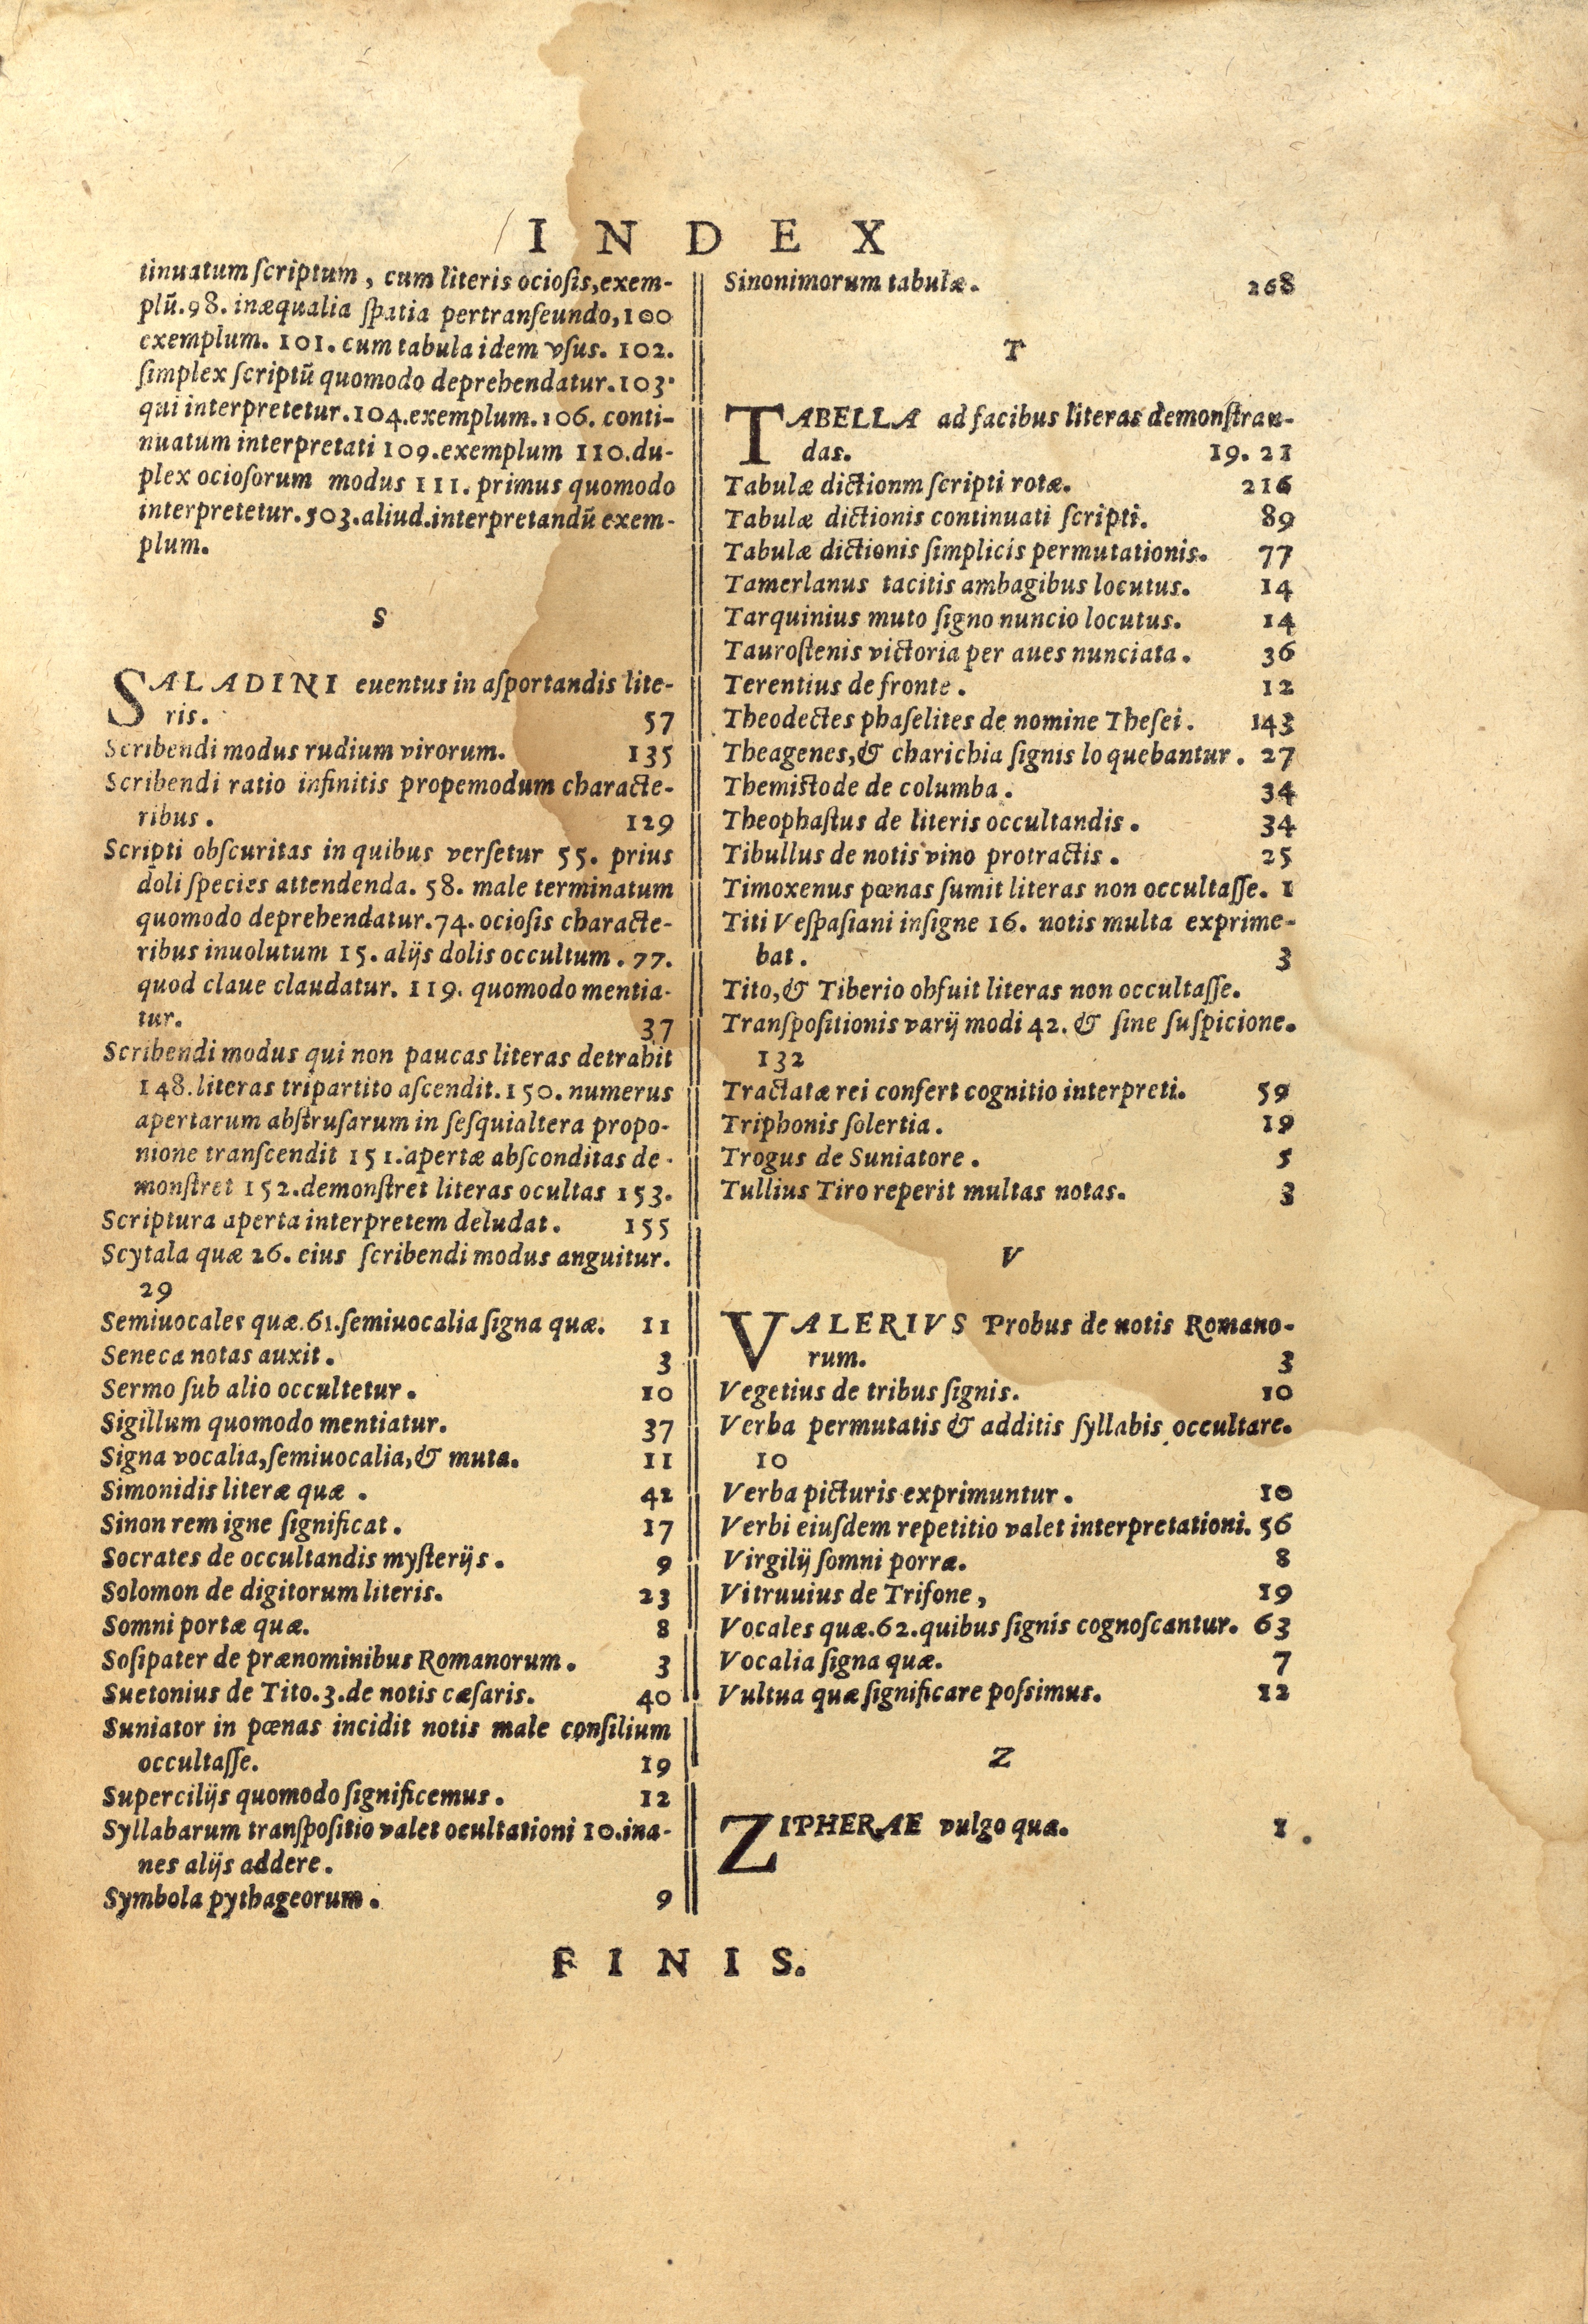 INDEX
tinuatum scriptum, cum literis ociosis, exem-
plũ. 98. inæqualia spatia pertranseundo, 100
exemplum. 101. cum tabula idem vsus. 102.
simplex scriptũ quomodo deprehendatur. 103.
qui interpretetur. 104. exemplum. 106. conti-
nuatum interpretati 109. exemplum 110. du-
plex ociosorum modus 111. primus quomodo
interpretetur. 503. aliud. interpretandũ exem-
plum.
S
SALADINI euentus in asportandis lite-
ris. 57
Scribendi modus rudium virorum. 135
Scribendi ratio infinitis propemodum characte-
ribus. 129
Scripti obscuritas in quibus versetur 55. prius
doli species attendenda. 58. male terminatum
quomodo deprehendatur. 74. ociosis characte-
ribus inuolutum 15. alijs dolis occultum. 77.
quod claue claudatur. 119. quomodo mentia-
tur. 37
Scribendi modus qui non paucas literas detrahit
148. literas tripartito ascendit. 150. numerus
apertarum abstrusarum in sesquialtera propo-
nione transcendit 151. apertæ absconditas de-
monstret 152. demonstret literas ocultas 153.
Scriptura aperta interpretem deludat. 155
Scytala quæ 26. eius scribendi modus anguitur.
29
Semiuocales quæ. 61. semiuocalia signa quæ. 11
Seneca notas auxit. 3
Sermo sub alio occultetur. 10
Sigillum quomodo mentiatur. 37
Signa vocalia, semiuocalia, & muta. 11
Simonidis literæ quæ. 42
Sinon rem igne significat. 17
Socrates de occultandis mysterijs. 9
Solomon de digitorum literis. 23
Somni portæ quæ. 8
Sosipater de prænominibus Romanorum. 3
Suetonius de Tito. 3. de notis cæsaris. 40
Suniator in pœnas incidit notis male consilium
occultasse. 19
Supercilijs quomodo significemus. 12
Syllabarum transpositio valet ocultationi 10. ina-
nes alijs addere.
Symbola pythageorum. 9
Sinonimorum tabulæ. 268
T
TABELLA ad facibus literas demonstran-
das. 19. 21
Tabulæ dictionm scripti rotæ. 216
Tabulæ dictionis continuati scripti. 89
Tabulæ dictionis simplicis permutationis. 77
Tamerlanus tacitis ambagibus locutus. 14
Tarquinius muto signo nuncio locutus. 14
Taurostenis victoria per aues nunciata. 36
Terentius de fronte. 12
Theodectes phaselites de nomine Thesei. 143
Theagenes, & charichia signis lo quebantur. 27
Themistode de columba. 34
Theophastus de literis occultandis. 34
Tibullus de notis vino protractis. 25
Timoxenus pœnas sumit literas non occultasse. 1
Titi Vespasiani insigne 16. notis multa exprime-
bat. 3
Tito, & Tiberio obfuit literas non occultasse.
Transpositionis varij modi 42. & sine suspicione.
132
Tractatæ rei confert cognitio interpreti. 59
Triphonis solertia. 19
Trogus de Suniatore. 5
Tullius Tiro reperit multas notas. 3
V
VALERIVS Probus de notis Romano-
rum. 3
Vegetius de tribus signis. 10
Verba permutatis & additis syllabis occultare.
10
Verba picturis exprimuntur. 10
Verbi eiusdem repetitio valet interpretationi. 56
Virgilij somni porræ. 8
Vitruuius de Trifone, 19
Vocales quæ. 62. quibus signis cognoscantur. 63
Vocalia signa quæ. 7
Vultua quæ significare possimus. 12
Z
ZIPHERAE vulgo quæ. 1
FINIS.